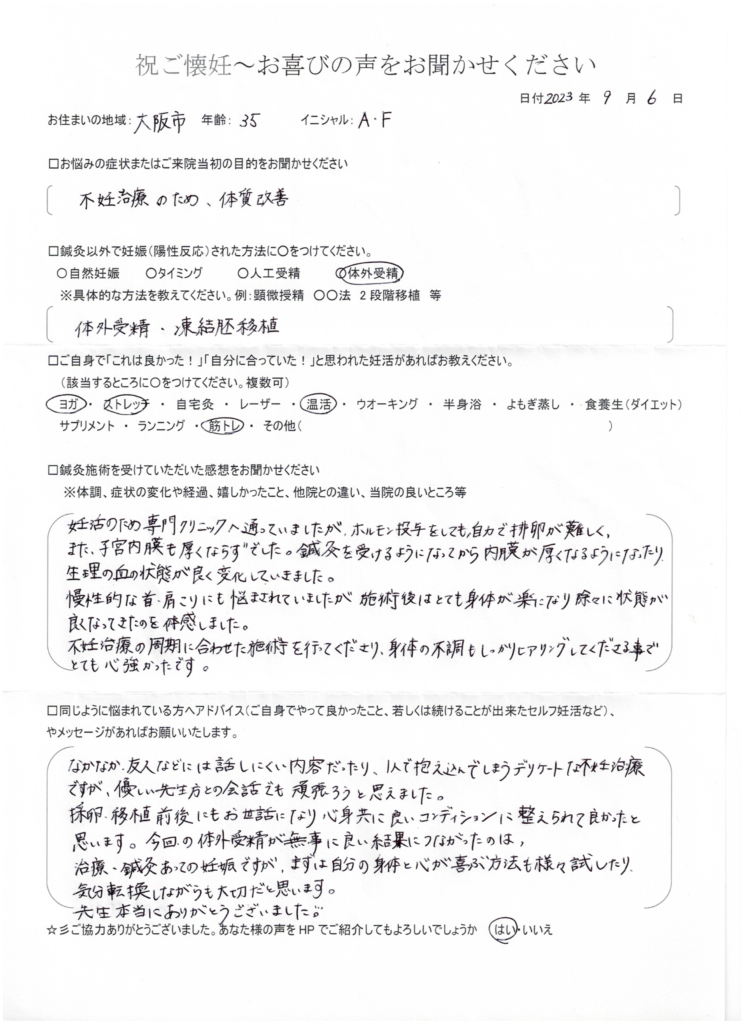 祝ご懐妊～お喜びの声をお聞かせください
日付2023年 9 月 6 日
お住まいの地域：大阪市 年齢：35 イニシャル：A・F
□お悩みの症状またはご来院当初の目的をお聞かせください
不妊治療のため、体質改善
□鍼灸以外で妊娠（陽性反応）された方法に○をつけてください。
○自然妊娠 ○タイミング ○人工受精 ○体外受精
※具体的な方法を教えてください。例：顕微授精 ○○法 2段階移植 等
体外受精・凍結胚移植
□ご自身で「これは良かった！」「自分に合っていた！」と思われた妊活があればお教えください。
（該当するところに○をつけてください。複数可）
ヨガ・ストレッチ・自宅灸・レーザー・温活・ウオーキング・半身浴・よもぎ蒸し・食養生（ダイエット）
サプリメント・ランニング・筋トレ・その他（ ）
□鍼灸施術を受けていただいた感想をお聞かせください
※体調、症状の変化や経過、嬉しかったこと、他院との違い、当院の良いところ等
妊活のため専門クリニックへ通っていましたが、ホルモン投与をしても自力で排卵が難しく、
また、子宮内膜も厚くならずでした。鍼灸を受けるようになってから内膜が厚くなるようになったり、
生理の血の状態が良く変化していきました。
慢性的な首・肩こりにも悩まされていましたが 施術後はとても身体が楽になり徐々に状態が
良くなってきたのを体感しました。
不妊治療の周期に合わせた施術を行ってくださり、身体の不調もしっかりヒアリングしてくださる事で
とても心強かったです。
□同じように悩まれている方へアドバイス（ご自身でやって良かったこと、若しくは続けることが出来たセルフ妊活など）、
やメッセージがあればお願いいたします。
なかなか、友人などには話しにくい内容だったり、1人で抱え込んでしまうデリケートな不妊治療
ですが、優しい先生方との会話でも頑張ろうと思えました。
採卵・移植前後にもお世話になり心身共に良いコンディションに整えられて良かったと
思います。今回の体外受精が無事に良い結果につながったのは、
治療・鍼灸あっての妊娠ですが、まずは自分の身体と心が喜ぶ方法も様々試したり、
気分転換しながらも大切だと思います。
先生本当にありがとうございました。
☆彡ご協力ありがとうございました。あなた様の声をHPでご紹介してもよろしいでしょうか はい・いいえ